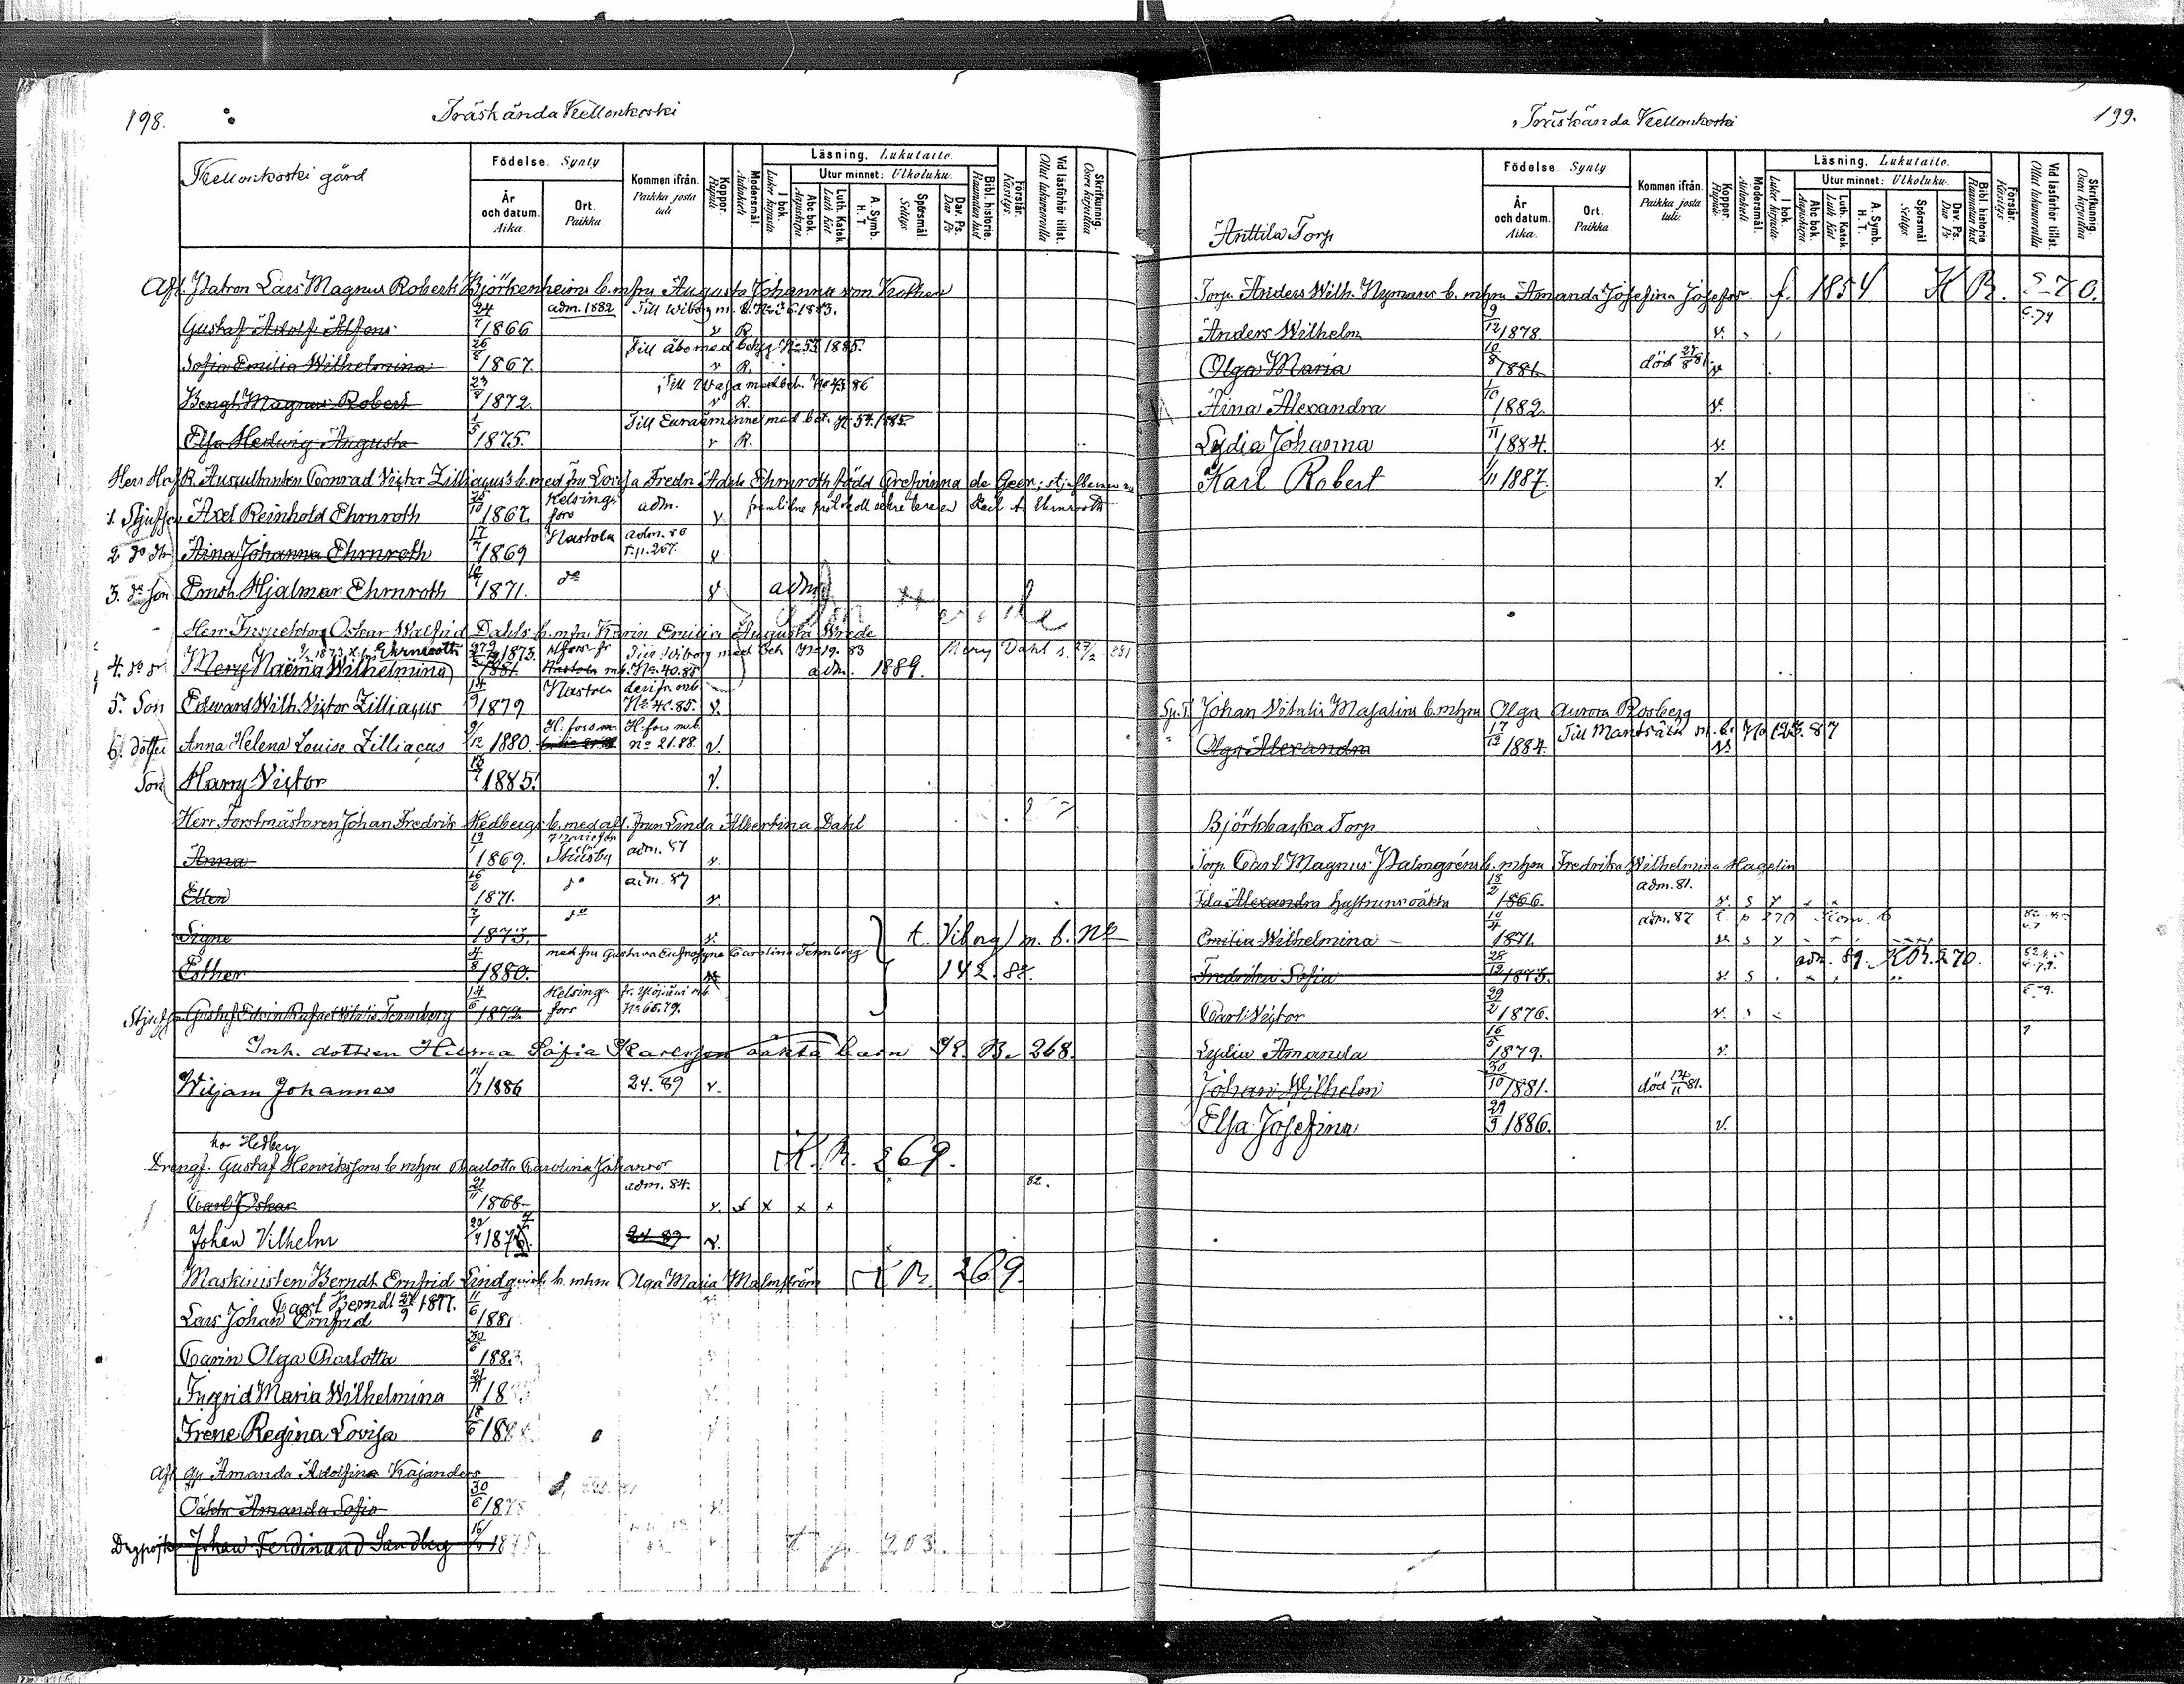 198.
Träskända Kellonkoski
Kellonkoski gård
Födelse. Synty
År och datum. Aika.
Ort. Paikka
Kommen ifrån. Paikka josta tuli
Koppor. Rupuli
Modersmål. Äidinkieli
Läsning. Lukutaito.
I bok. Lukee kirjasta
Utur minnet: Ulkoluku.
Abc bok. Aapiskirja
Luth. Katek. Luth. Kat
A. Symb. H. T.
Spörsmål Selitys
Dav. Ps. Dav. Ps
Bibl. historie. Raamatun hist
Förstår. Käsitys.
Vid läsförhör tillst. Ollut lukuvuorolla
Skrifkunnig. Osaa kirjoittaa
Afl. Patron Lars Magnus Robert Björkenheims b. m fru Augusta Johanna von Knothen
Gustaf Adolf Alfons 24/7 1866 adm. 1882 Till Wiborg m. b. No 6. 1883. v R.
Sofia Emilia Wilhelmina 26/8 1867. Till Åbo med betyg No 53 1885. v R.
Bengt Magnus Robert 23/8 1872. Till Wasa med bet. No 43 86 v R.
Elsa Hedwig Augusta 1/5 1875. Till Euraåminne med bet. No 54. 1885 v R.
Herr Hof R. Auscultanten Conrad Victor Zilliacus's b. med fru Lovisa Fredr. Adele Ehrnroth född Grefvinna de Geer; stjufbarnen
1. Stjufson Axel Reinhold Ehrnroth 25/10 1867. Helsingfors adm. v. framlidne protokoll sekreteraren Karl A. Ehrnrooth
2. do dtr Aina Johanna Ehrnroth 17/7 1869 Nastola adm. 86 t. p. 267. v
3. do Son Ernst Hjalmar Ehrnroth 10/7 1871. do v adm
Herr Inspektorn Oskar Walfrid Dahls b. m fru Karin Emilia Augusta Wrede
Ehrnrooth 1873. Till Wiborg med bet No 19. 83 Mery Dahl
4. do do Mery Naëma Wilhelmina 1881 Nastola mb. No 40. 85 adm. 1889.
5. Son Edward Wilh. Victor Zilliacus 14/9 1879 Nastola No 40. 85. v.
6. dotter Anna Helena Louise Zilliacus 9/12 1880. H. fors H. fors mb. no 21. 88. v.
Son Harry Victor 13/7 1885. v.
Herr Forstmästaren Johan Fredrik Hedbergs b. med afl. frun Linda Albertina Dahl
Anna 19/1 1869. adm. 87 v.
Ellen 16/2 1871. do adm. 87 v
Signe 7/7 1873. do v. t. Viborg m. b. No
med fru Gustava Eufrosyne Carolina Fernberg
Esther 4/8 1880. 142. 88.
Stjufs. Gustaf Edvin Rafael Vitalis Fernberg 14/6 1872. Helsingfors fr. Ylöjärvi mb. No 65. 79.
Inh. dottren Hilma Sofia Karlsson oäkta barn K. B. 268.
Wiljam Johannes 11/7 1886 24. 89 v.
hos Hedberg
Drengf. Gustaf Henrikssons b. mhru Charlotta Carolina K. B. 269.
Carl Oskar 21/11 1868 adm. 84. v. x x x x 82.
Johan Vilhelm 20/4 187 24. 89 v.
Maskinisten Berndt Ernfrid Lindqvists b. mhru Olga Maria Malmström K B. 269.
Carl Berndt 27/9 1877.
Lars Johan Ernfrid 11/6 188
Carin Olga Charlotta 30/6 1883.
Ingrid Maria Wilhelmina 21/11 18
Irene Regina Lovisa 18/6 18
Afl. Amanda Adolfina Kajanders
Oäkta Amanda Sofia 30/6 1878
Johan Ferdinand Sandberg 16 187 t p. 203.
Träskända Kellonkoski
199.
Anttila Torp
Födelse. Synty
År och datum. Aika.
Ort. Paikka
Kommen ifrån. Paikka josta tuli.
Koppor. Rupuli.
Modersmål. Äidinkieli
Läsning. Lukutaito.
I bok. Lukee kirjasta
Utur minnet: Ulkoluku.
Abc bok. Aapiskirja
Luth. Katek. Luth Kat
A. Symb. H. T.
Spörsmål Selitys
Dav. Ps. Dav Ps
Bibl. historie Raamatun hist
Förstår. Käsitys
Vid läsförhör tillst. Ollut lukuvuorolla
Skrifkunnig. Osaa kirjoittaa
Torp. Anders Wilh. Nymans b. mhru Amanda Josefina Josefsr f. 1854 K B. 270.
Anders Wilhelm 9/12 1878. v.
Olga Maria 10/8 1881 död 27/8 81. v
Aina Alexandra 1/10 1882. v.
Lydia Johanna 1/11 1884. v.
Karl Robert 1/11 1887. v.
Johan Vitalis Masalins b. mhru Olga Aurora Rosberg
Olga Alexandra 17/12 1884. Till Mäntsälä m. b. No 123. 87 v.
Björkbacka Torp
Torp. Carl Magnus Palmgréns b. mhru Fredrika Wilhelmina Hagelin
Ida Alexandra hustruns oäkta 18/2 1866. adm. 81. v. s v x x
Emilia Wilhelmina 10/4 1871. adm. 87 t. p 270 v s v
Fredrika Sofia 28/12 1873. adm. 89. KB. 270. v. s
Carl Victor 29/2 1876. v.
Lydia Amanda 16/5 1879. v.
Johan Wilhelm 30/10 1881. död 14/11 81.
Elsa Josefina 29/3 1886. v.